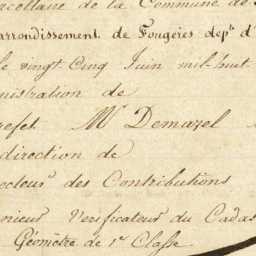 rcellaire de la Commune de
arrondissement de Fougères dépt d'
le vingt Cinq Juin mil huit
nistration de
réfet Mr Demazel
direction de
ecteur des Contributions
énieur Vérificateur du Cadas
Géomètre de 1re Classe